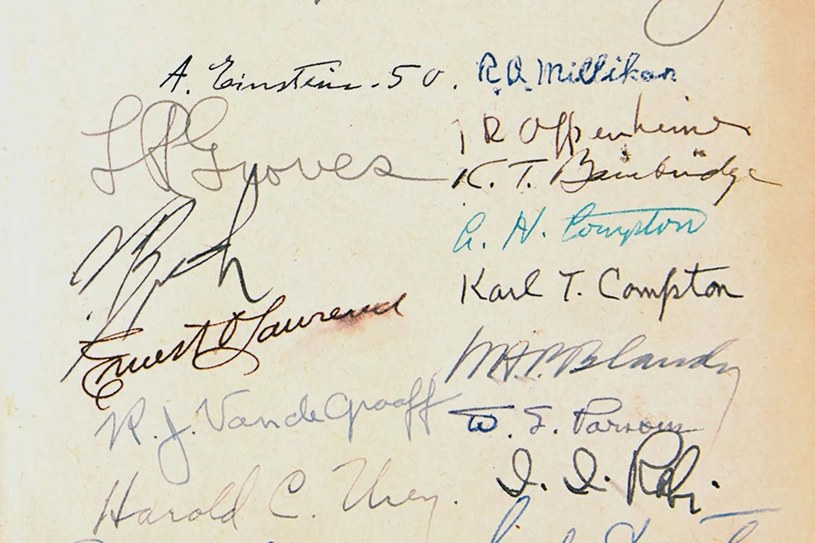 A. Einstein. 50.
R.A. Millikan
L R Groves
J R Oppenheimer
K. T. Bainbridge
A. H. Compton
V Bush
Karl T. Compton
Ernest O Lawrence
W.H.P. Blandy
R. J. Van de Graaff
W. S. Parsons
I. I. Rabi.
Harold C. Urey.